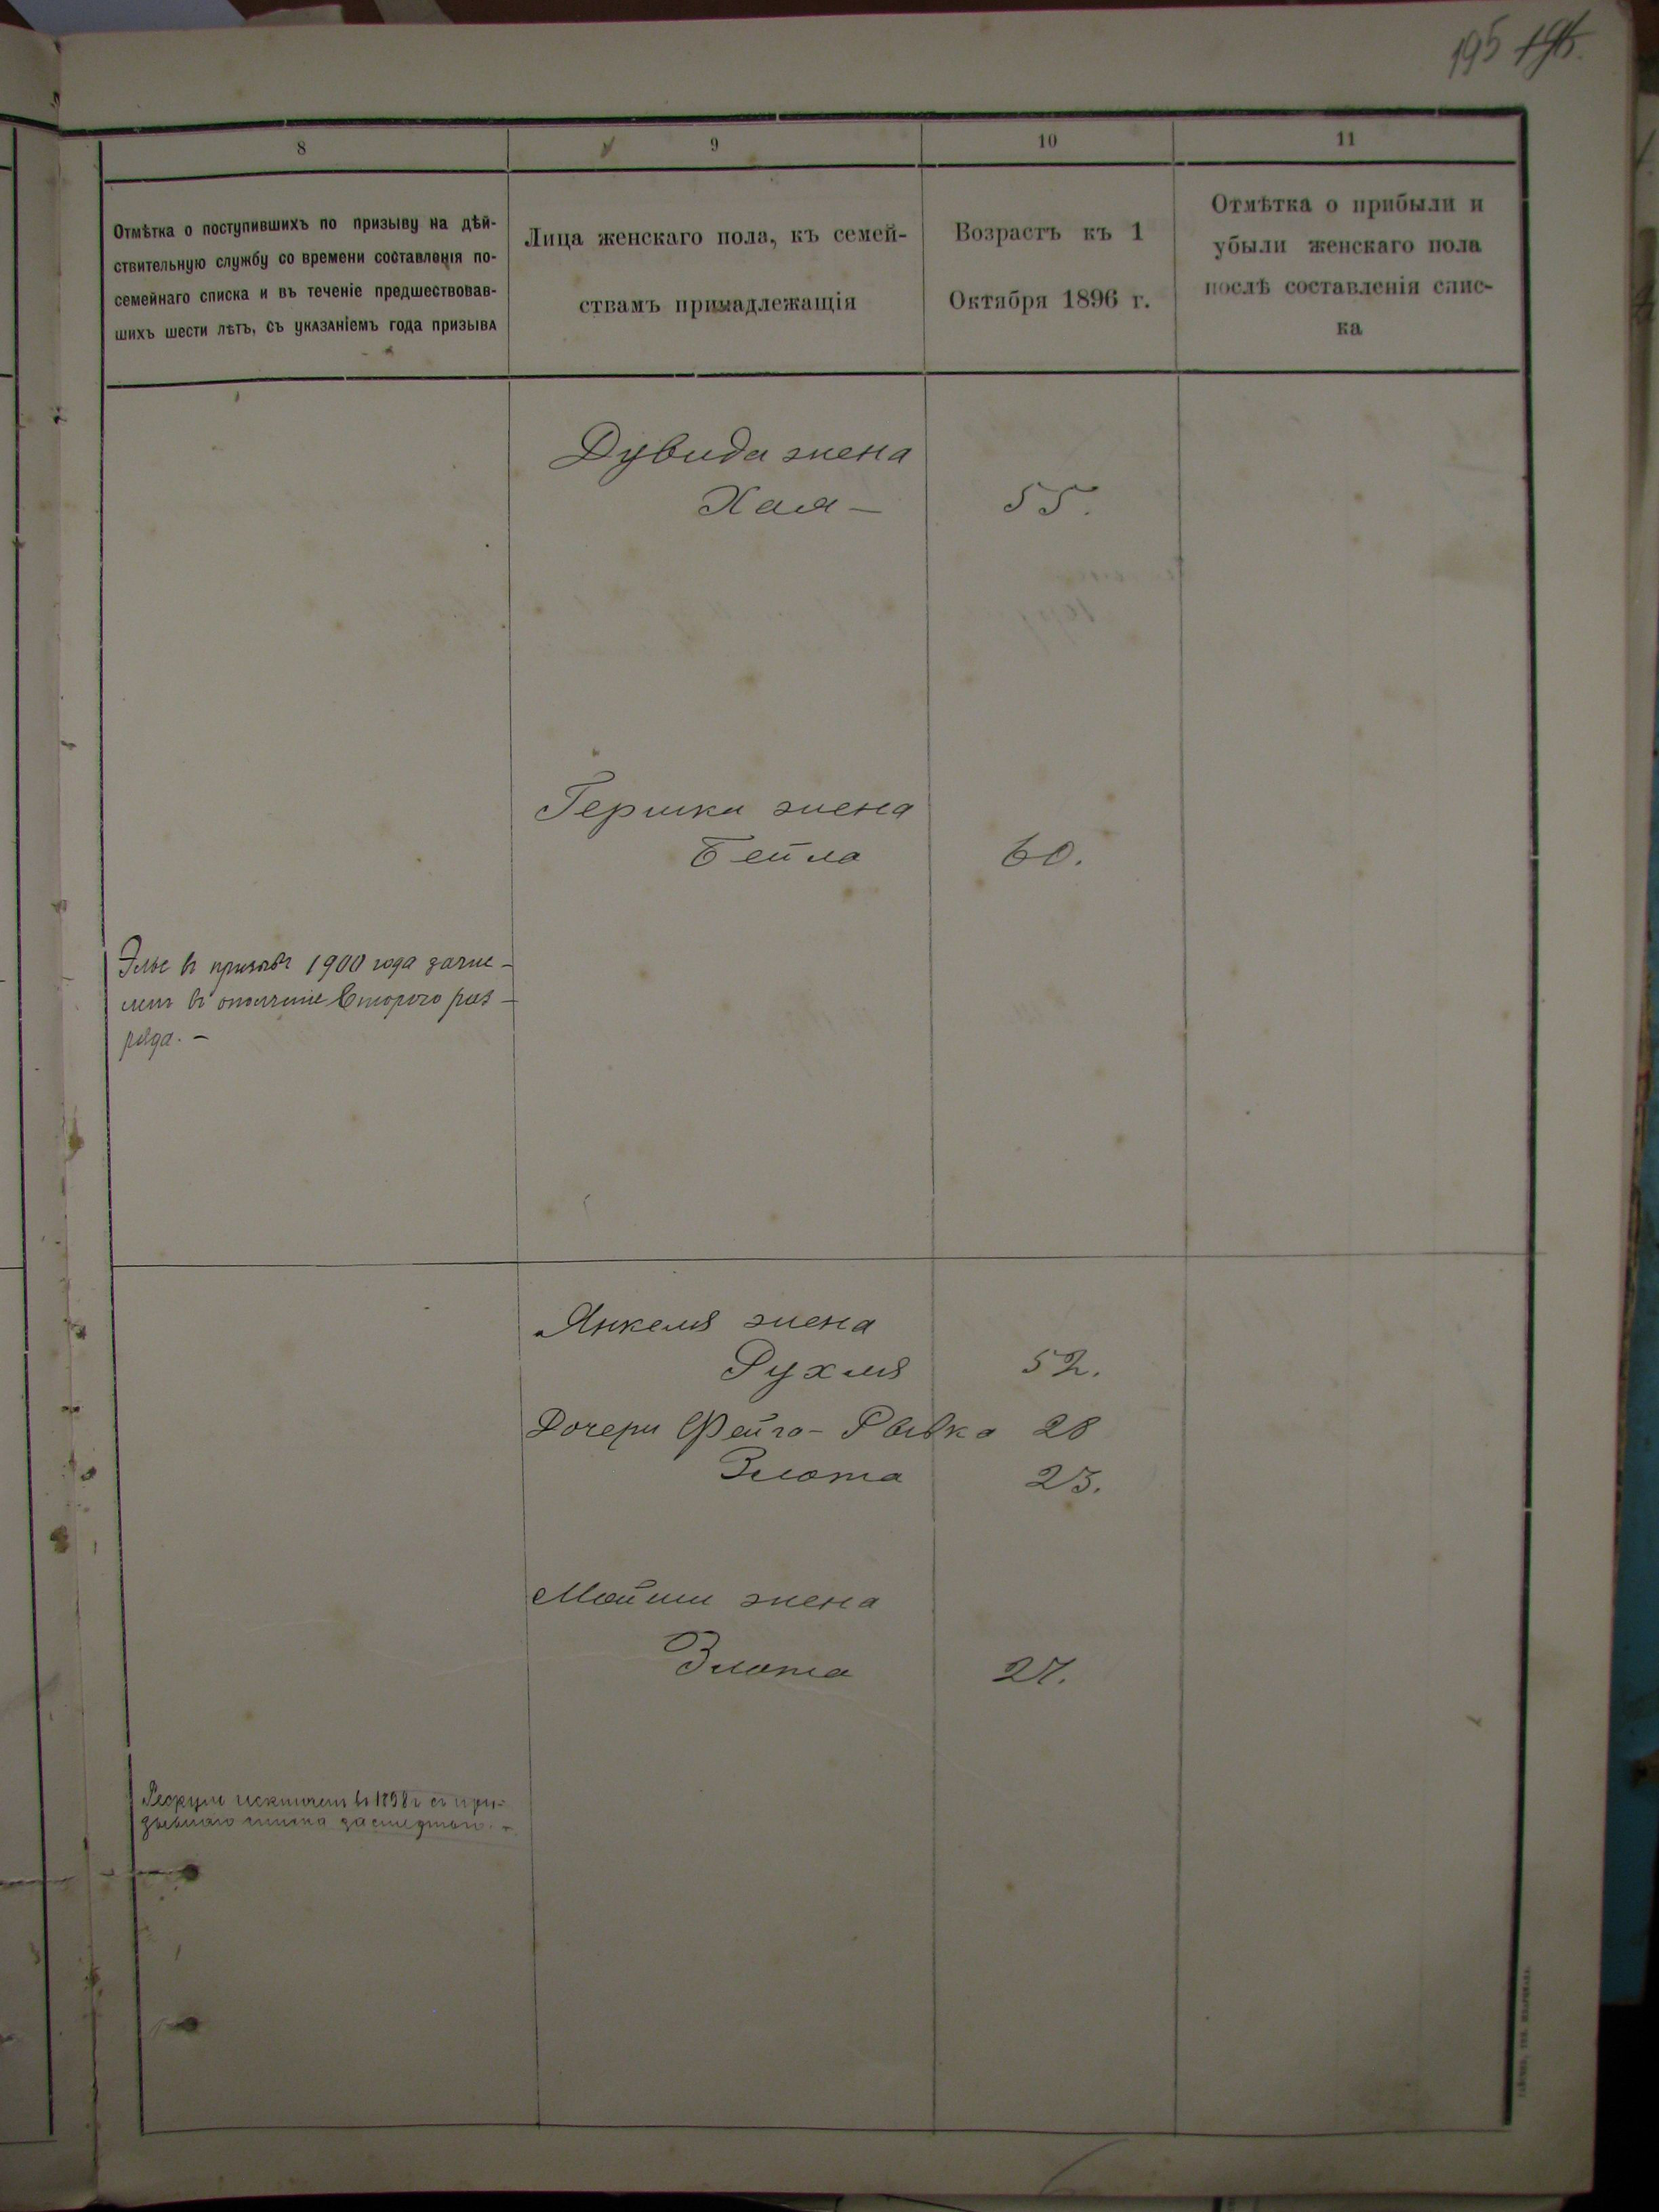 195 196.
8
9
10
11
Отмѣтка о поступившихъ по призыву на дѣй-
ствительную службу со времени составленія по-
семейнаго списка и въ теченіе предшествовав-
шихъ шести лѣтъ, съ указаніемъ года призыва
Лица женскаго пола, къ семей-
ствамъ принадлежащія
Возрастъ къ 1
Октября 1896 г.
Отмѣтка о прибыли и
убыли женскаго пола
послѣ составленія спис-
ка
Дувида жена
Хая — 55.
Гершки жена
Бейла 60.
въ призывъ 1900 года зачис-
ленъ въ ополченіе Второго раз-
ряда. —
Янкеля жена
Рухля 52.
Дочери Фейга-Рывка 28
Злота 23.
Мойши жена
Злота 27.
исключенъ въ 1898 г. съ при-
зывнаго